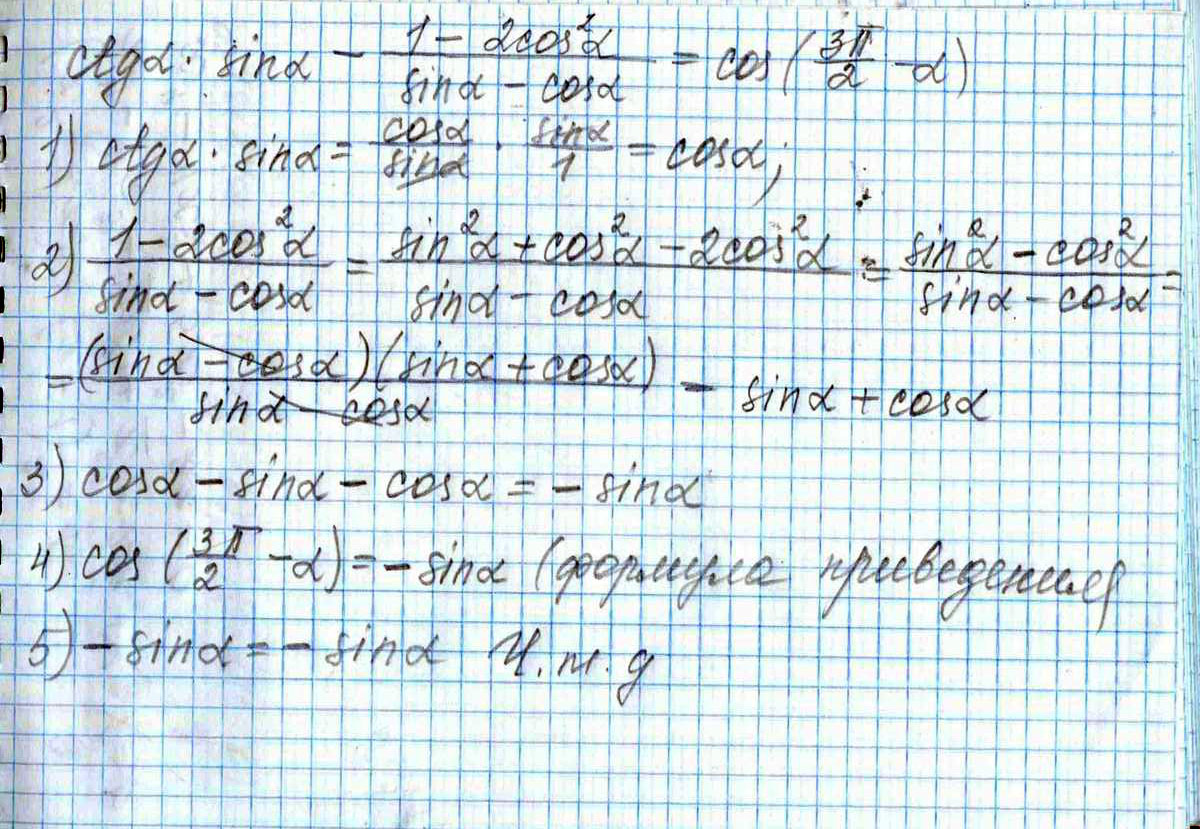 ctgα · sinα − (1 − 2cos²α)/(sinα − cosα) = cos(3π/2 − α)
1) ctgα · sinα = cosα/sinα · sinα/1 = cosα;
2) (1 − 2cos²α)/(sinα − cosα) = (sin²α + cos²α − 2cos²α)/(sinα − cosα) = (sin²α − cos²α)/(sinα − cosα) =
= (sinα − cosα)(sinα + cosα)/(sinα − cosα) = sinα + cosα
3) cosα − sinα − cosα = − sinα
4) cos(3π/2 − α) = − sinα (формула приведения)
5) − sinα = − sinα Ч.т.д